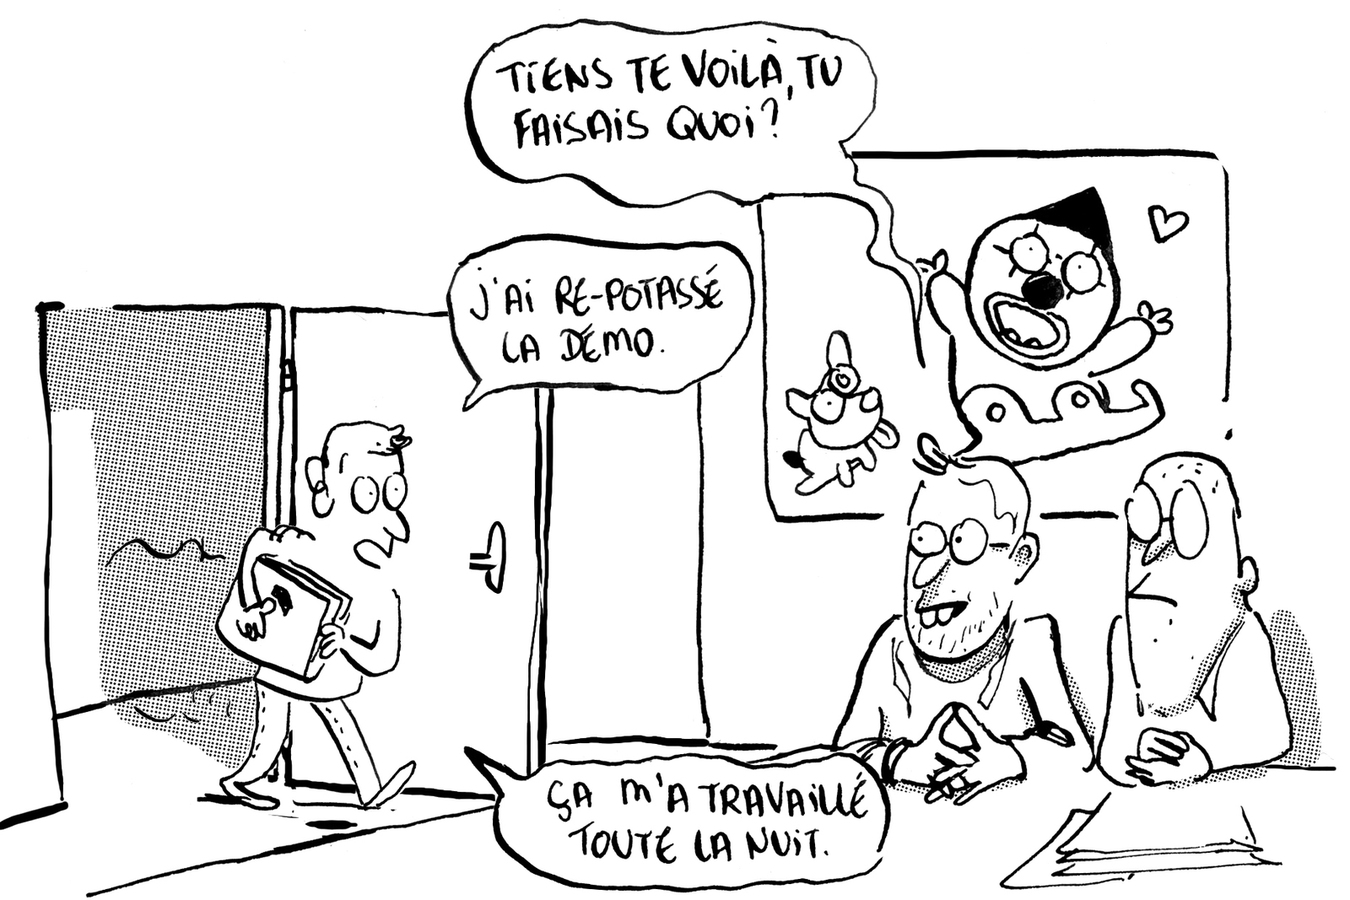 TIENS TE VOILÀ, TU
FAISAIS QUOI?
J'AI RE-POTASSÉ
LA DÉMO.
ÇA M'A TRAVAILLÉ
TOUTE LA NUIT.